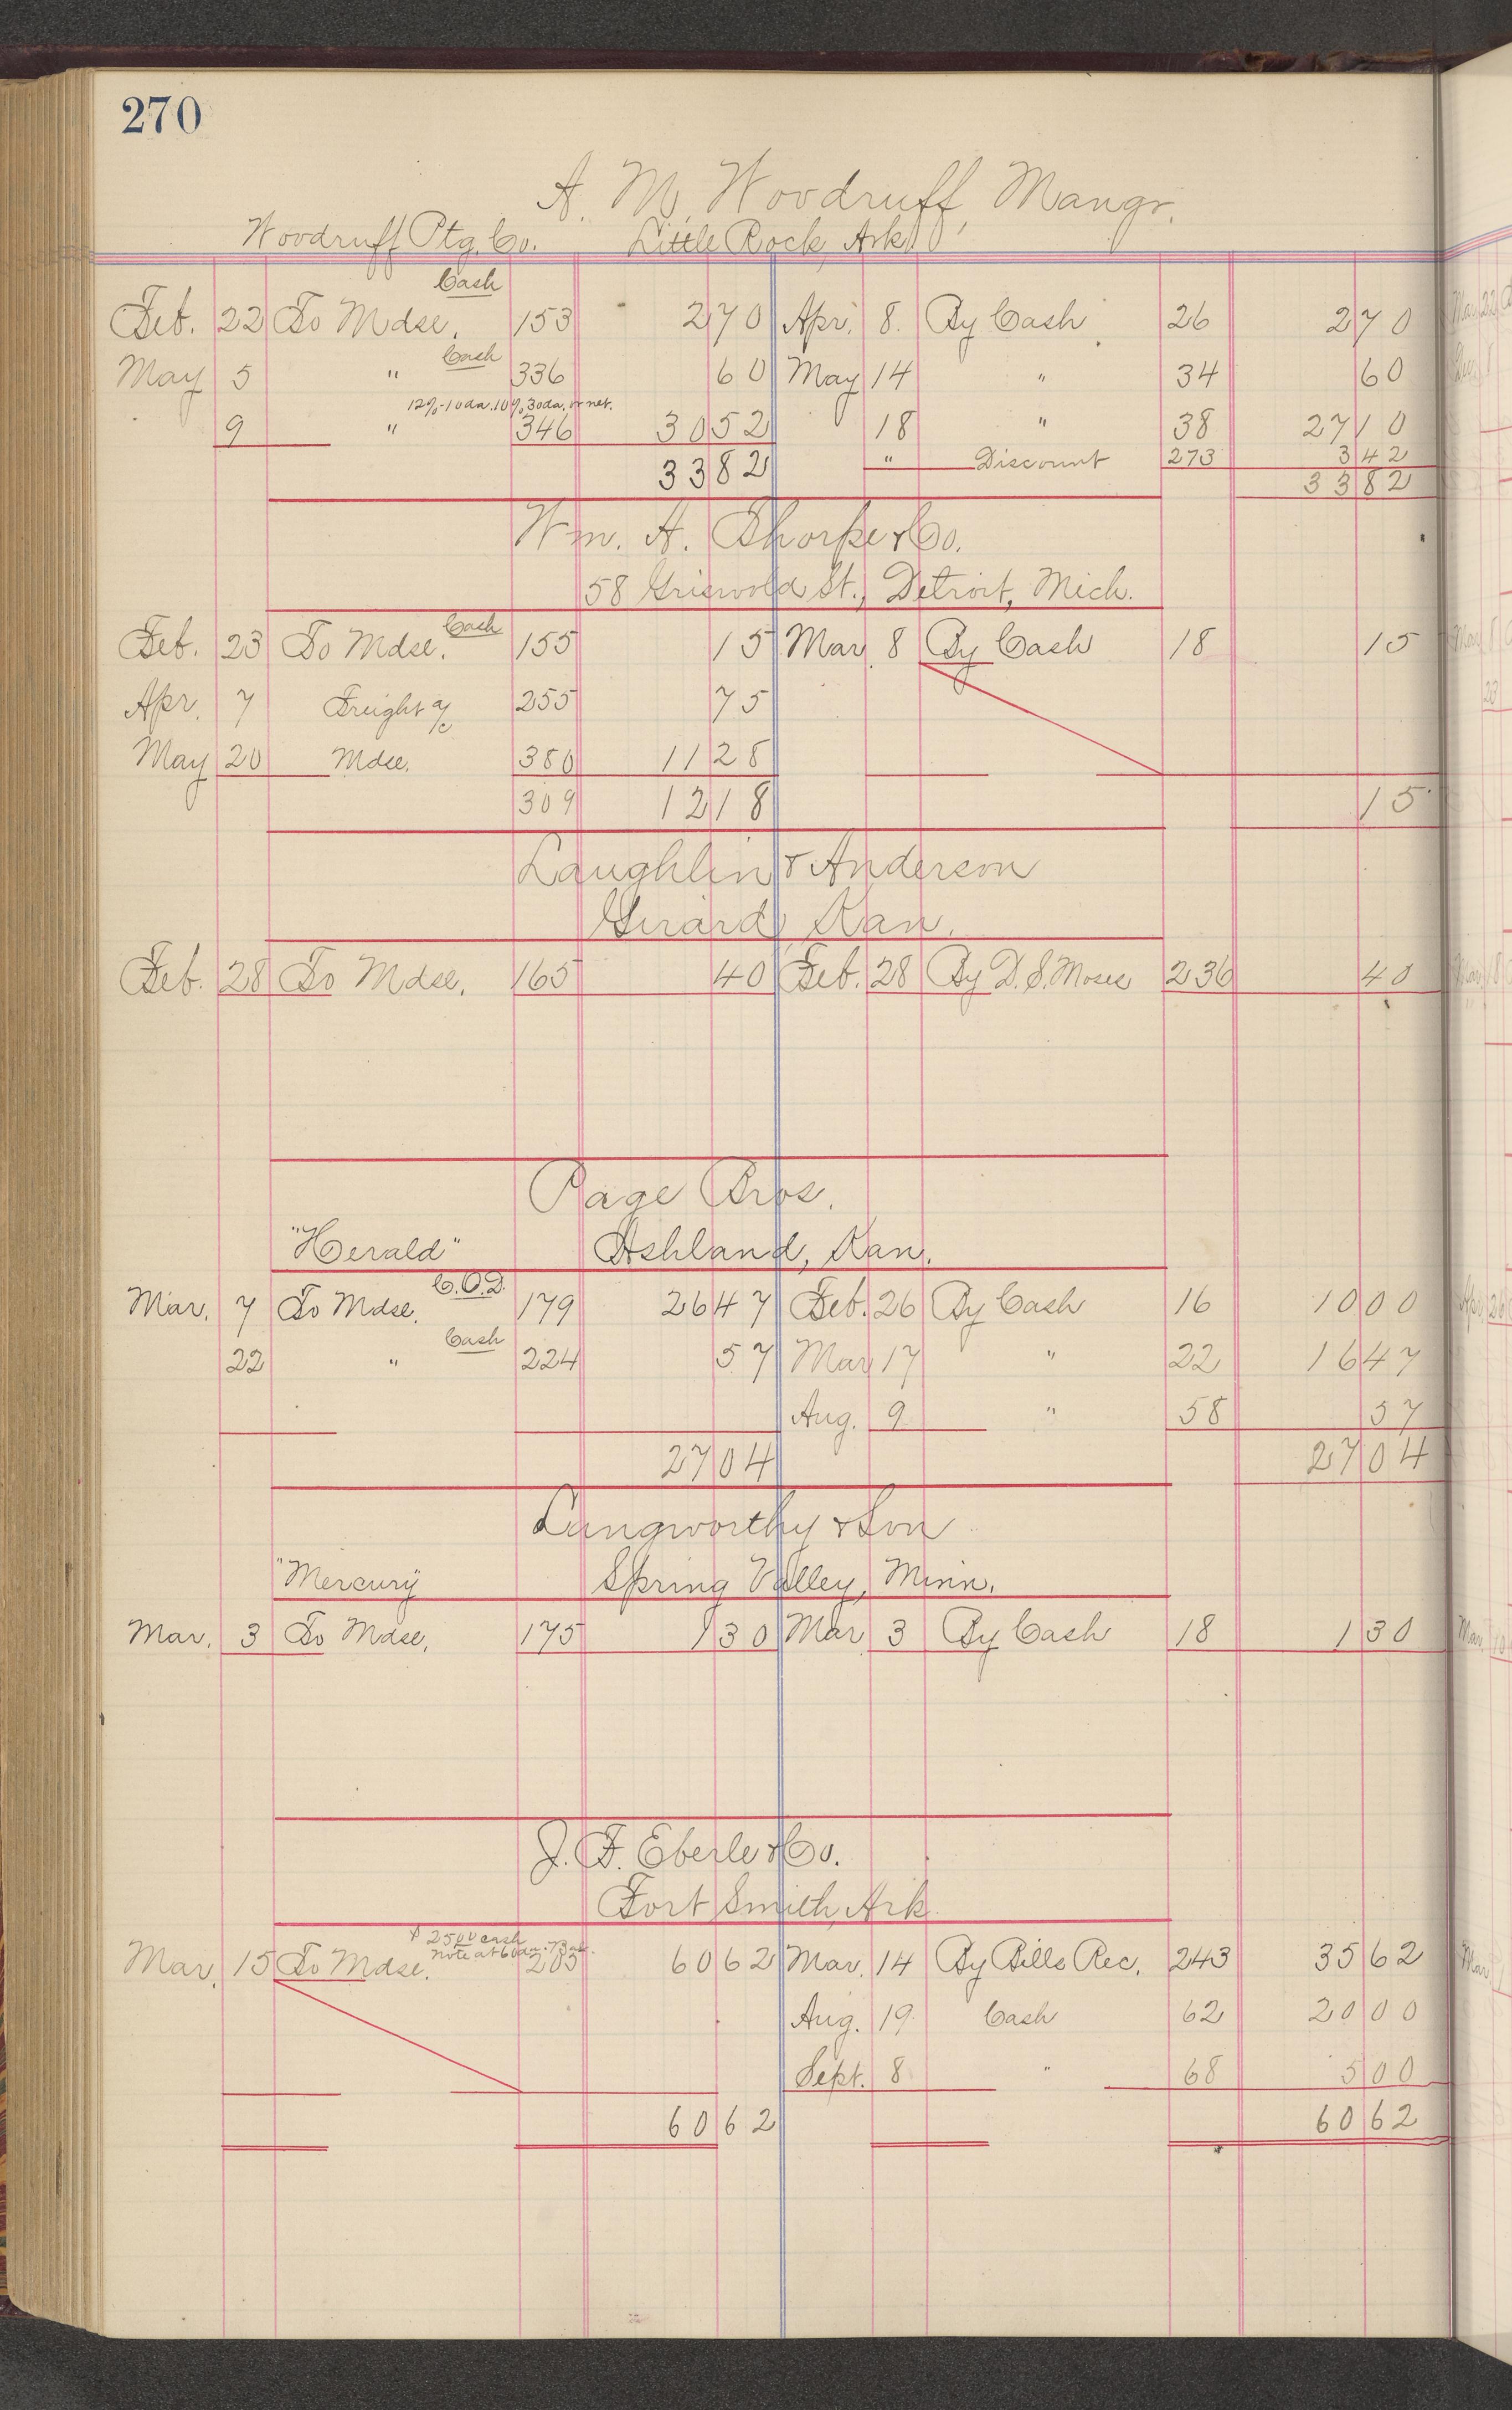 270
A. M. Woodruff, Mangr.
Woodruff Ptg. Co. Little Rock, Ark.
Cash
Feb. 22 To Mdse. 153 2 70 Apr. 8. By Cash 26 2 70
Cash
May 5 " 336 60 May 14 " 34 60
12%-10da. 10%30da. or net.
9 " 346 30 52 18 " 38 27 10
33 82 " Discount 273 3 42
33 82
Wm. A. Thorpe & Co.
58 Griswold St., Detroit, Mich.
Feb. 23 To Mdse. Cash 155 15 Mar 8 By Cash 18 15
Apr. 7 Freight a/c 255 75
May 20 Mdse. 380 11 28
309 12 18 15
Laughlin & Anderson
Girard, Kan.
Feb. 28 To Mdse. 165 40 Feb. 28 By D. S. Moses 236 40
Page Bros.
"Herald" Ashland, Kan.
C.O.D.
Mar. 7 To Mdse. 179 26 47 Feb. 26 By Cash 16 10 00
Cash
22 " 224 57 Mar 17 " 22 16 47
Aug. 9 " 58 57
27 04 27 04
Langworthy & Son
"Mercury" Spring Valley, Minn.
Mar. 3 To Mdse. 175 1 30 Mar 3 By Cash 18 1 30
J. F. Eberle & Co.
Fort Smith, Ark
25 00 cash
note at 60da.
Mar. 15 To Mdse. 205 60 62 Mar. 14 By Bills Rec. 243 35 62
Aug. 19 Cash 62 20 00
Sept. 8 " 68 5 00
60 62 60 62